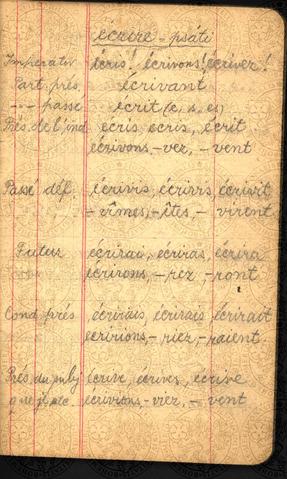 écrire – psáti
Imperativ écris! écrivons! écrivez!
Part. prés. écrivant
-"- passé écrit (e, s, es)
Prés. de l'ind. écris, ecris, écrit
écrivons, -vez, -vent
Passé déf. écrivis, écrivis, écrivit
-vîmes, -êtes, -virent
Futur écrirai, écriras, écrira
écrirons, -rez, -ront
Cond. prés. écrirais, écrirais, écrirait
ecririons, -riez, -raient
Prés. du subj écrive, écrives, écrive
que je, etc. écrivions, -viez, -vent